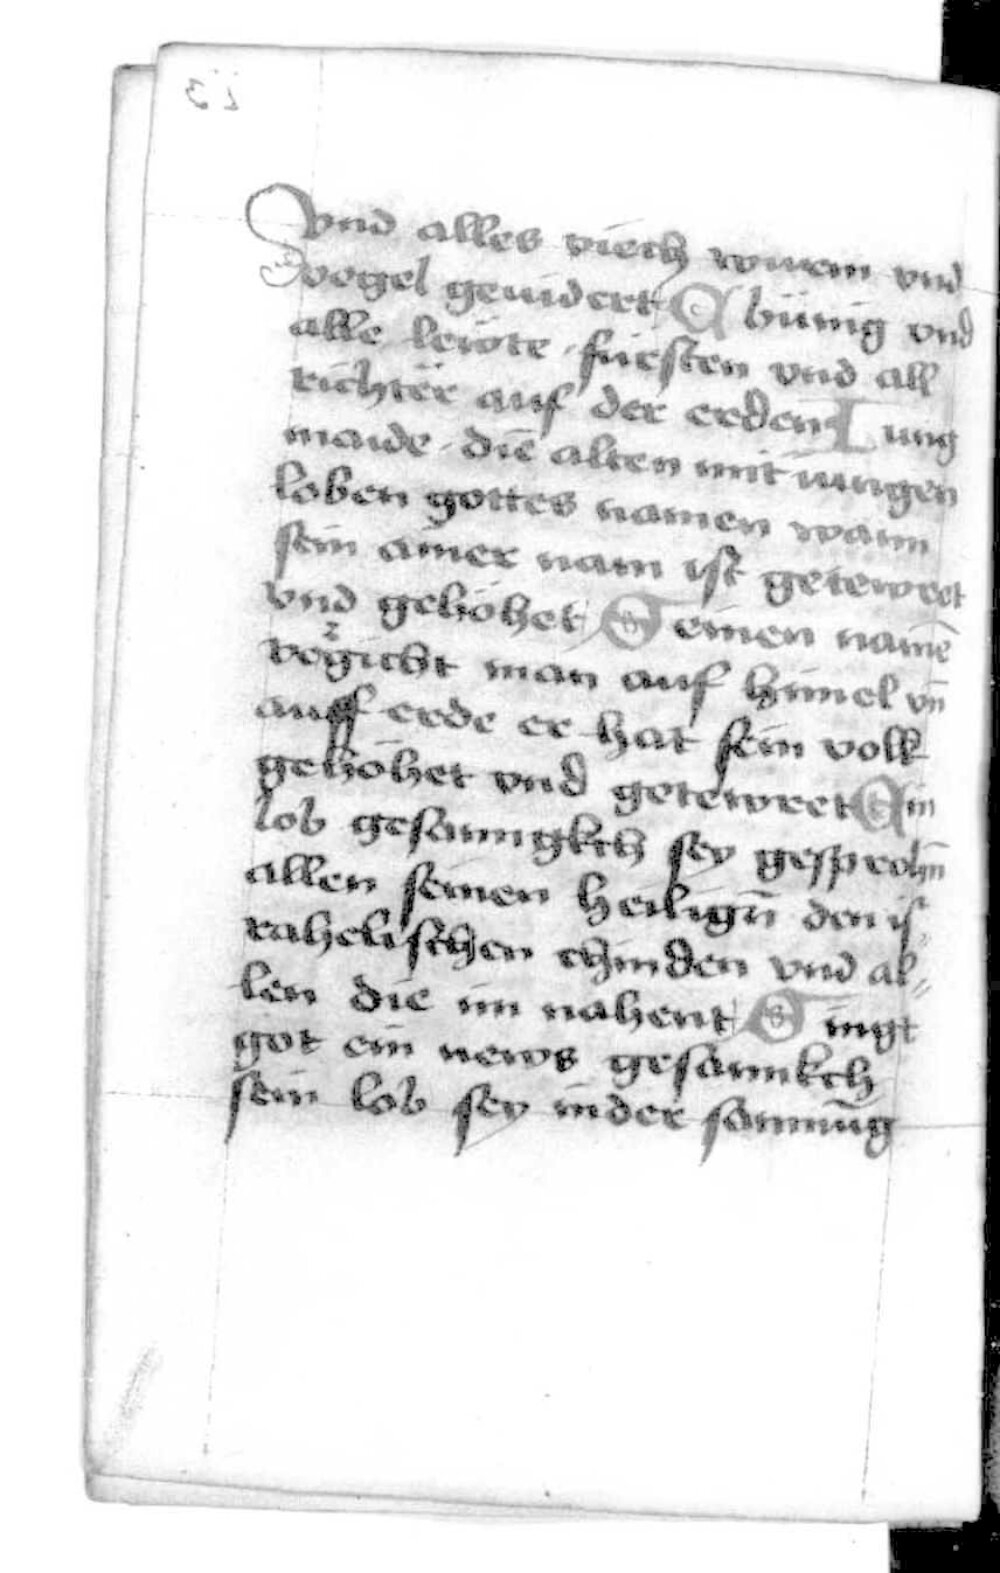 vnd alles viech wurem vnd
voegel gevidert A künig vnd
alle lewte fürsten vnd all
richter auf der erden I ung
maide die alten mit iungen
loben gottes namen wann
sein ainer nam ist getewret
vnd gehöhet S einen namē
vergicht man auf himel vñ
auff erde er hat sein volk
gehöhet vnd getewret A in
lob gesanngkch sey gesprochñ
allen seinen heiligñ den is
rahelischen chinden vnd al
len die im nahent S ingt
got ein news gesannkch
sein lob sey in der samnūg